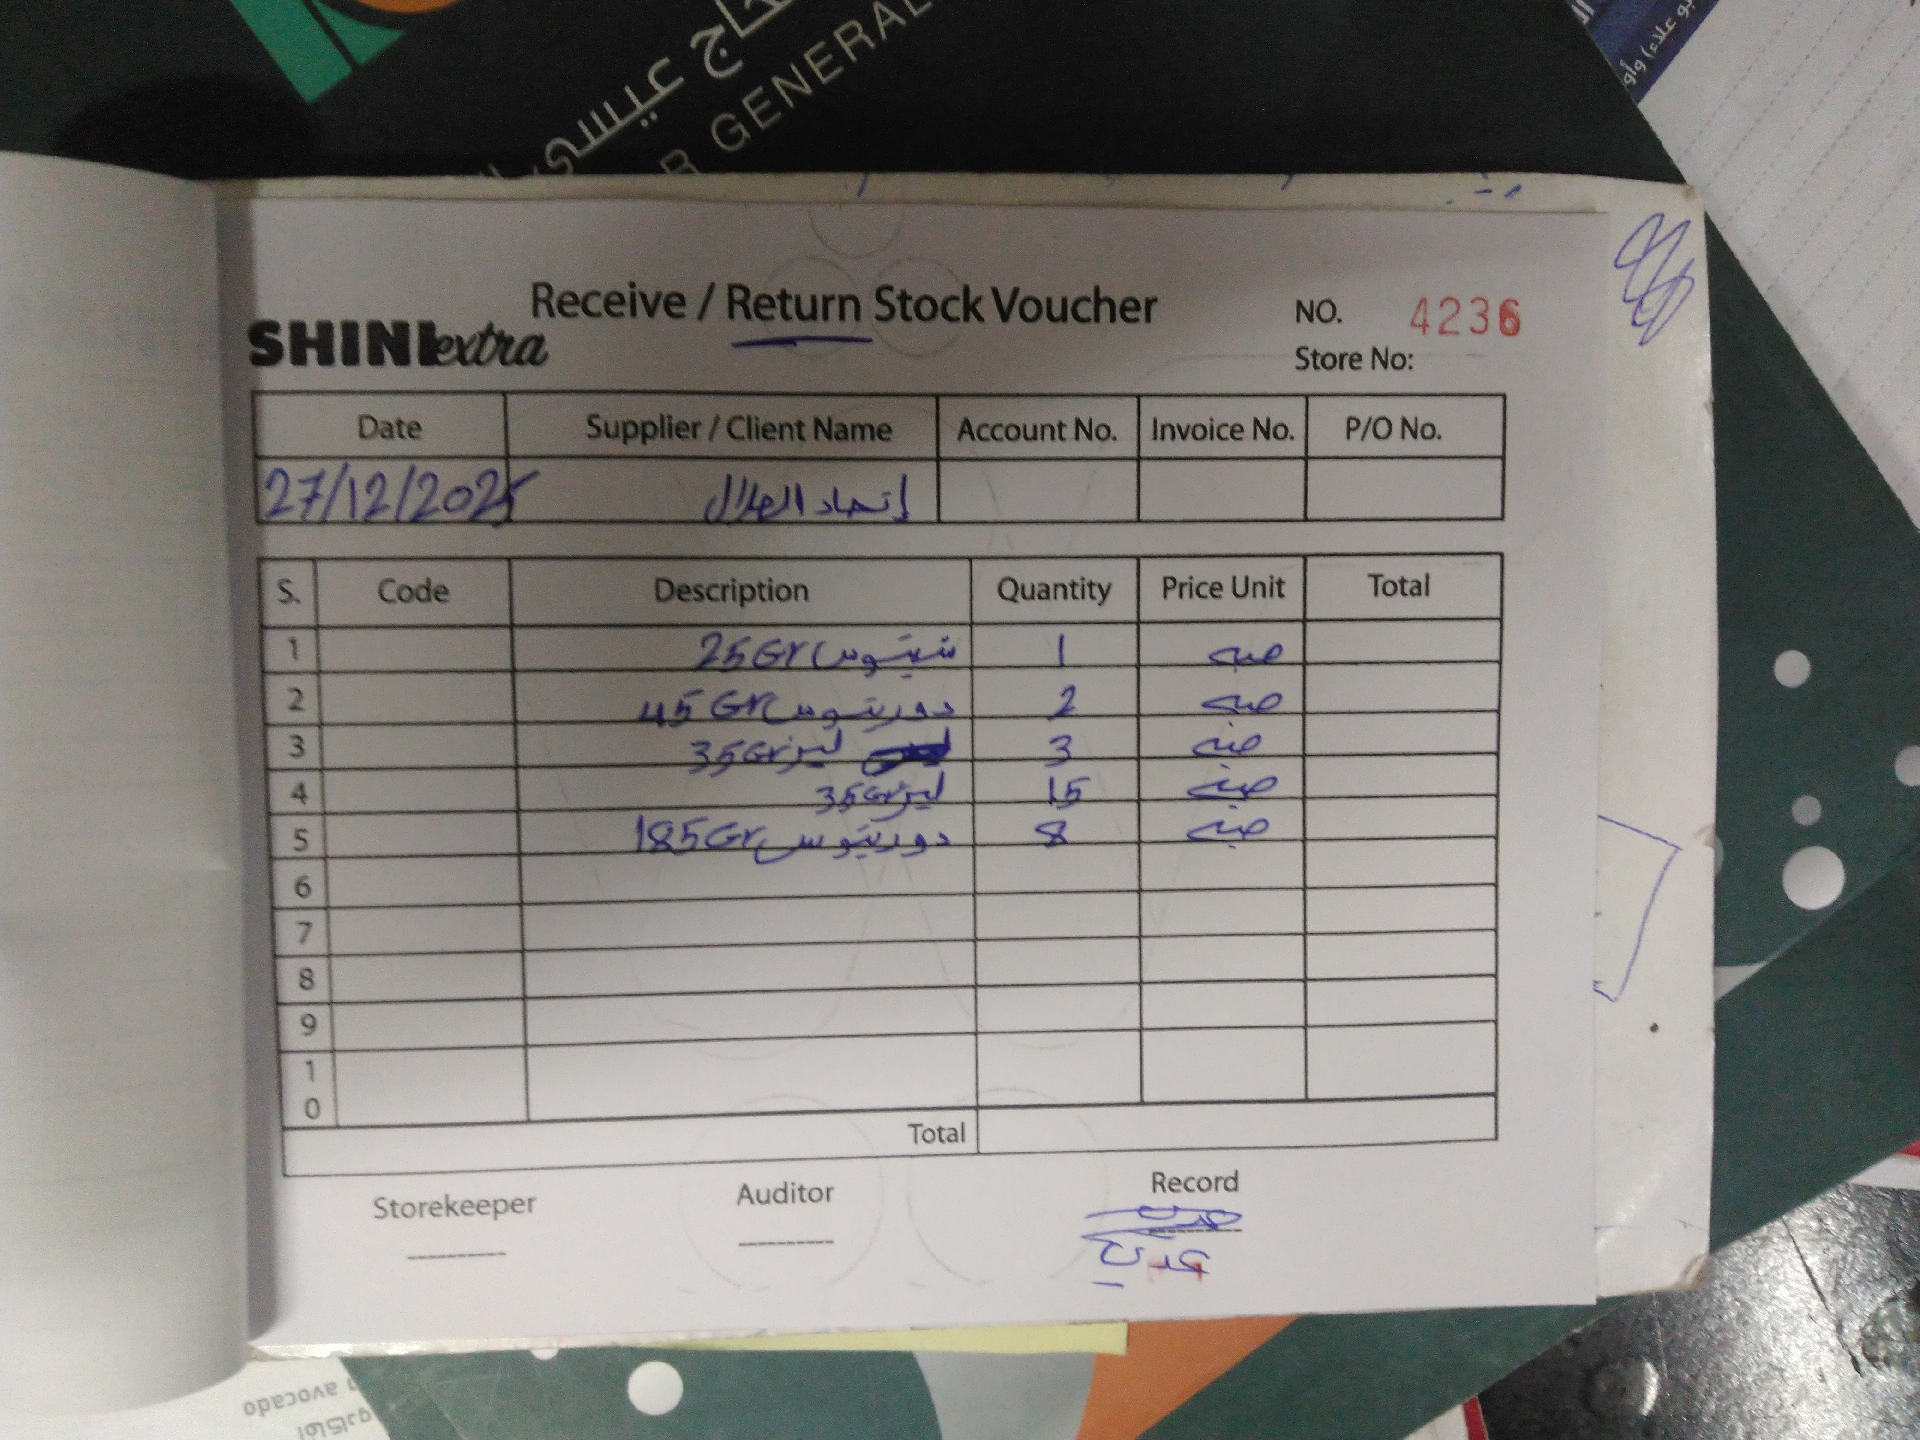 عيسى
GENERAL
Receive / Return Stock Voucher
SHINI extra
NO. 4236
Store No:
Date Supplier / Client Name Account No. Invoice No. P/O No.
27/12/2025 إتحاد الهلال
S. Code Description Quantity Price Unit Total
1 شيتوس 25Gr 1 حبه
2 دوريتوس 45 Gr 2 حبه
3 ليز 35Gr 3 حبه
4 ليز 35Gr 15 حبه
5 دوريتوس 185Gr 8 حبه
6
7
8
9
10
Total
Storekeeper Auditor Record
avocado